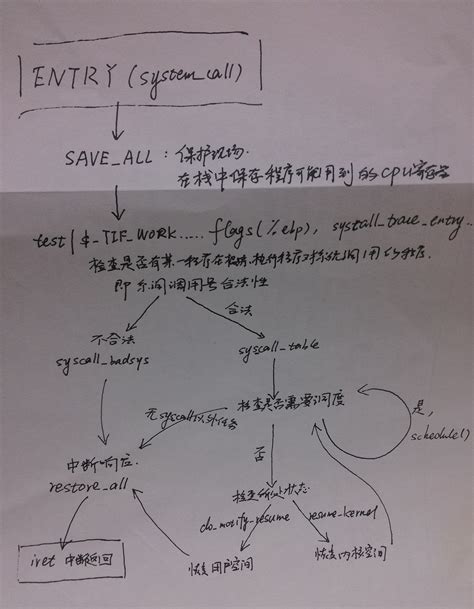 ENTRY (system_call)
SAVE_ALL : 保护现场.
在栈中保存程序可能用到的cpu寄存器
test | $_TIF_WORK...... flags(%ebp), systall_trace_entry..
检查是否有某一
即 调用号合法性
不合法
syscall_badsys
合法
syscall_table
检查是否需要调度
是,
schedule()
无syscall以外任务
否
中断响应.
restore_all
检查 状态
do_notify_resume
resume_kernel
iret 中断返回
恢复用户空间
恢复内核空间